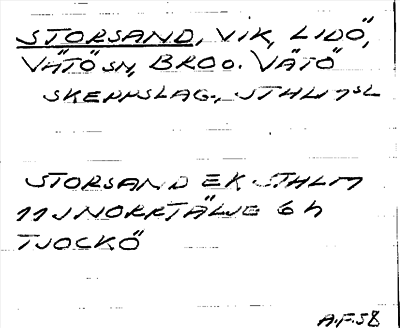 STORSAND, VIK, LIDÖ,
VÄTÖ SN, BRO O. VÄTÖ
SKEPPSLAG., STHLMSL
STORSAND EK STHLM
11J NORRTÄLJE 6 h
TJOCKÖ
A.F.58